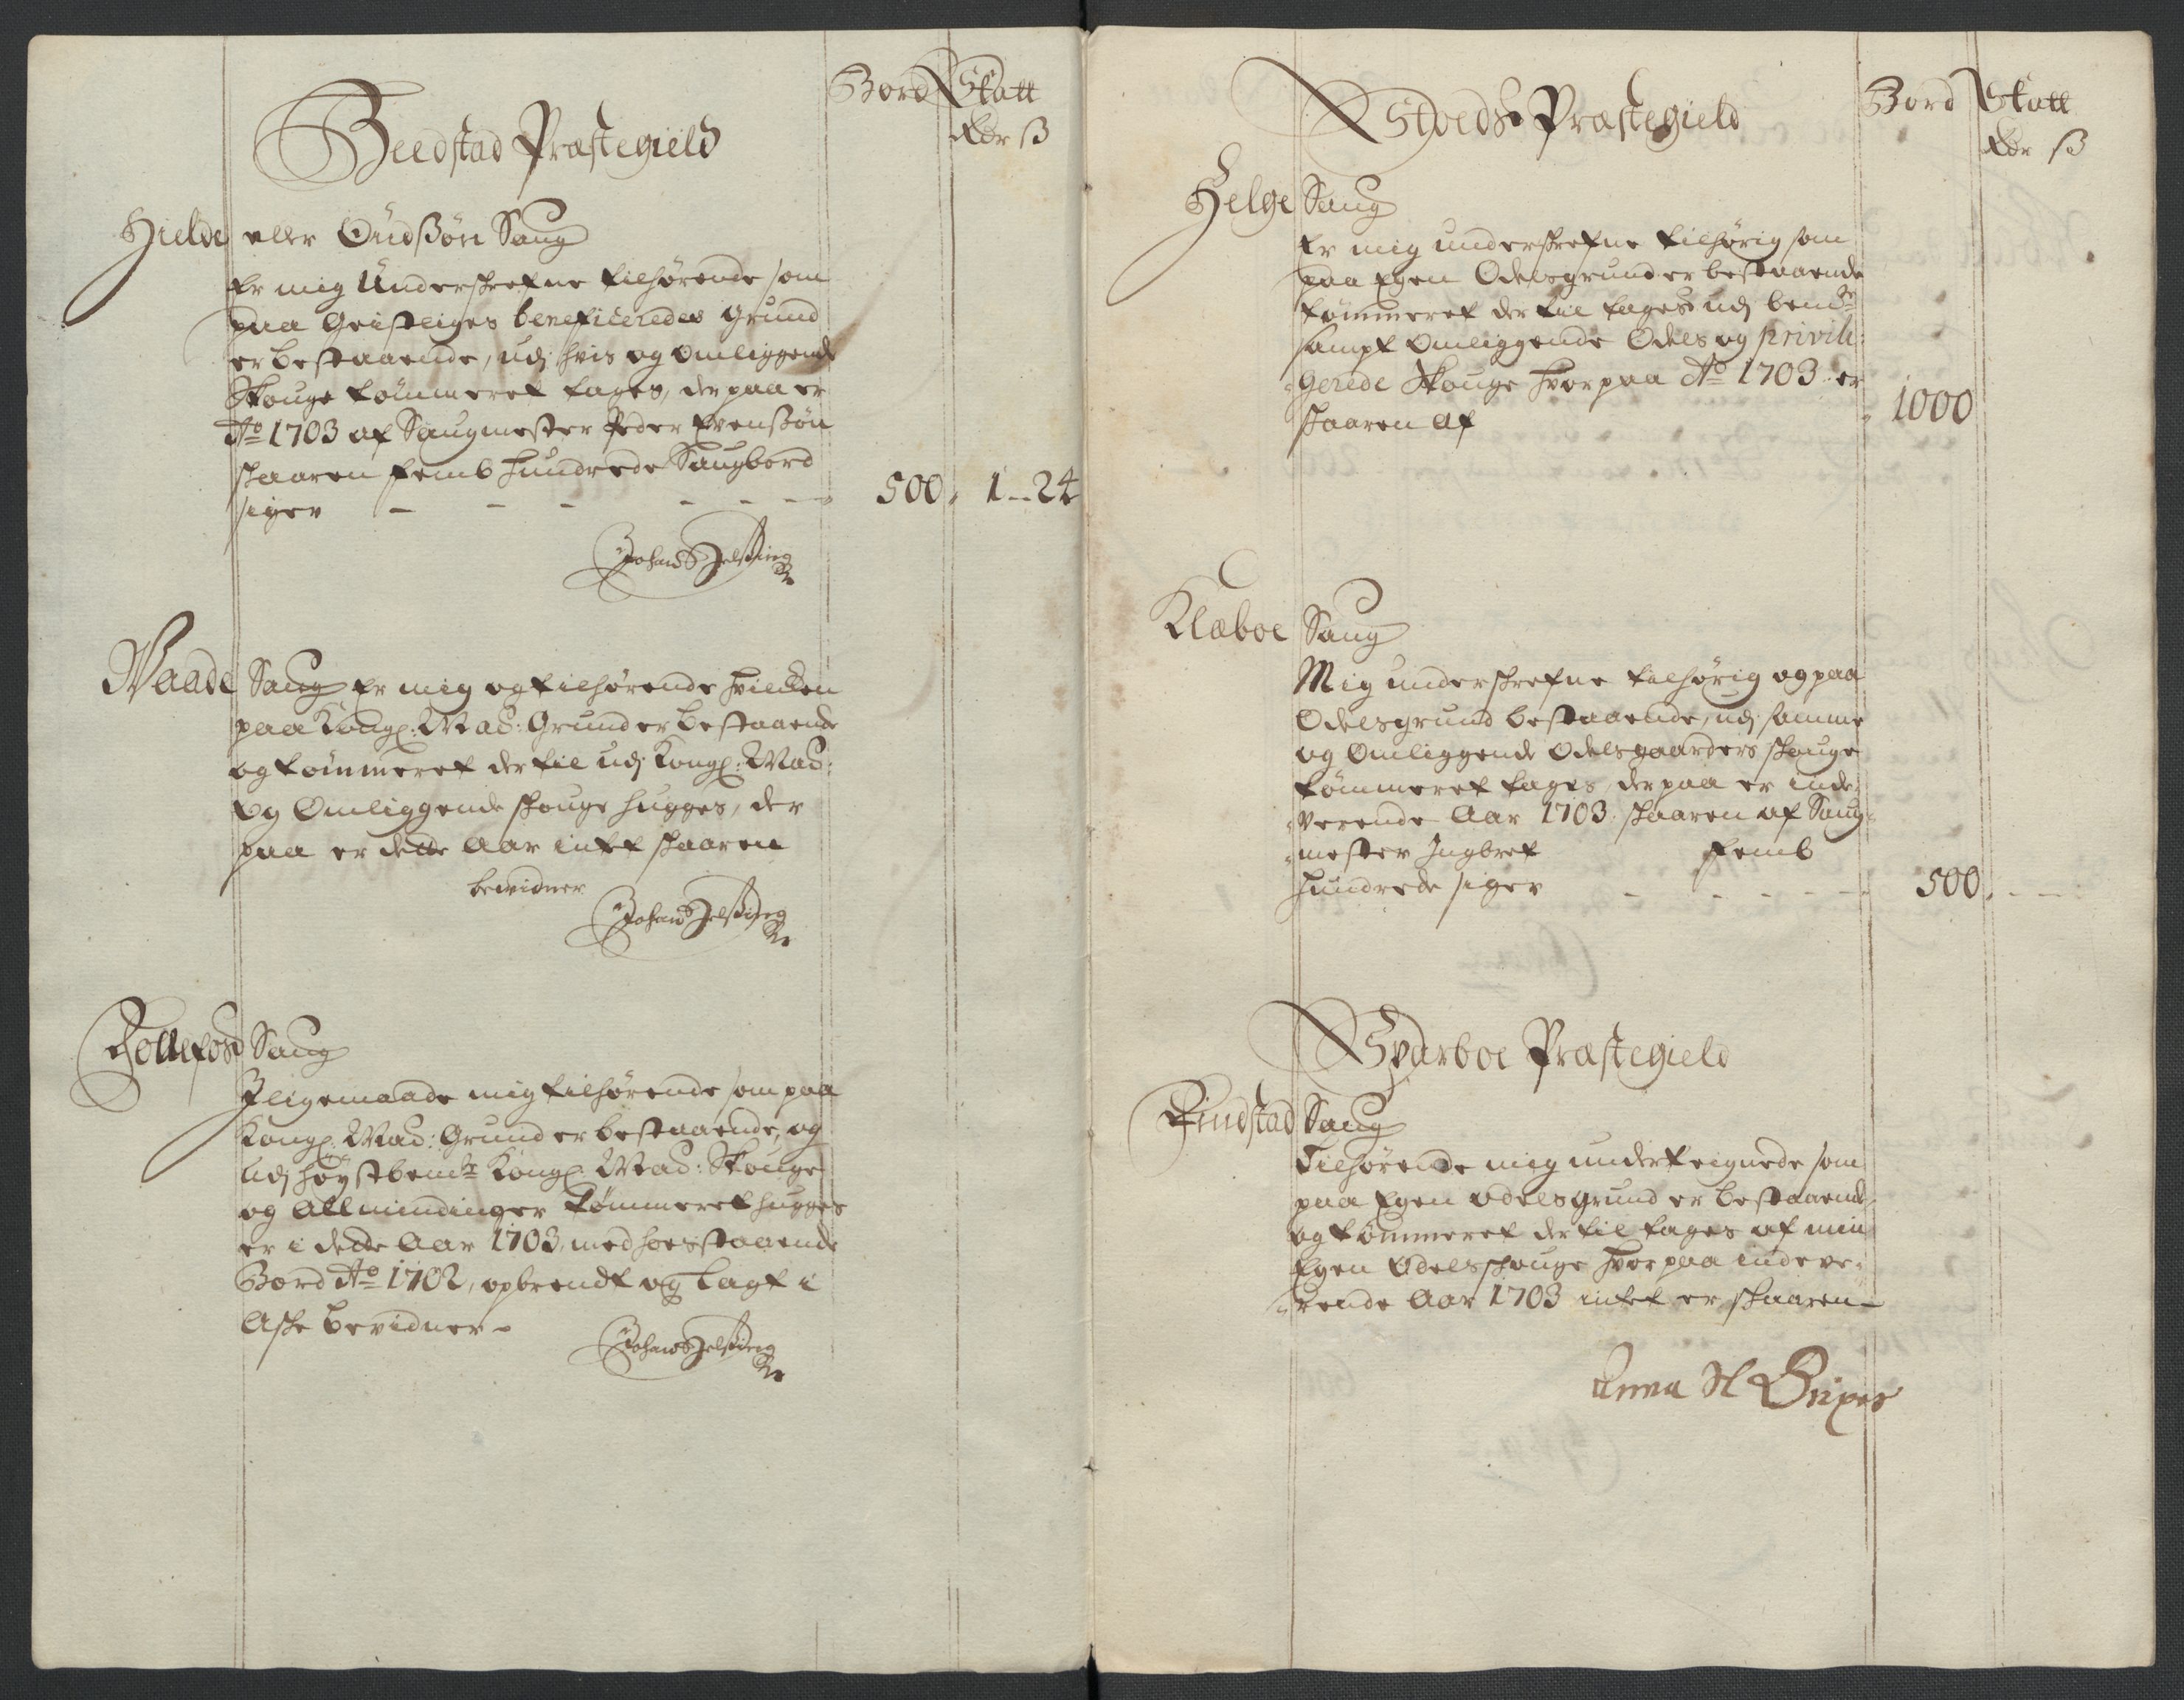 Bord Skatt
Rdr ß
Beedstad Præstegield
Hielde eller Oudßøn Saug
Er mig Underskrefne tilhørende som
paa Geistliges beneficeredes Grund
er bestaaende, udj hvis og omliggende
Skouge tømmeret tages, der paa er
Ao 1703 af Saugmester Peder Evensøn
skaaren femb hundrede Saugbord
siger - - - - - - 500, 1 - 24
Johan Helsking
Vaade Saug Er mig og tilhørende hvilcken
paa Kongl: May: Grund er bestaaende
og tømmeret der til udj Kongl: May:
og Omliggende skouge hugges, der
paa er dette Aar intet skaaren
bevidner
Johan Helsking
Follefos Saug
Iligemaade mig tilhørende som paa
Kongl: May: Grund er bestaaende, og
udj høystbemte Kongl: May: Skouge
og Allmindinger tømmeret hugges
er i dette Aar 1703, med hoesstaaende
Bord Ao 1702, opbrendt og lagt i
Aske bevidner -
Johan Helsking
Bord Skatt
Rdr ß
Stoeds Præstegield
Helge Saug
Er mig underskrefne tilhørig som
paa Egen Odelsgrund er bestaaende
tømmeret der til tages udj bemte
sampt omliggende Odels og privili-
gerede Skouge hvorpaa Ao 1703 er
skaaren af 1000
Klæboe Saug
Mig underskrefne tilhørig og paa
Odelsgrund bestaaende, udj samme
og Omliggende Odelsgaarders skouge
tømmeret tages, der paa er inde-
verende Aar 1703 skaaren af Saug-
mester Ingbret femb
hundrede siger - - - - - 500, - -
Sparboe Præstegield
Saug
Tilhørende mig undertegnede som
paa Egen odelsgrund er bestaaende,
og tømmeret der til tages af min
Egen Odelsskouge hvorpaa indeve-
rende Aar 1703 intet er skaaren -
Anna Sl